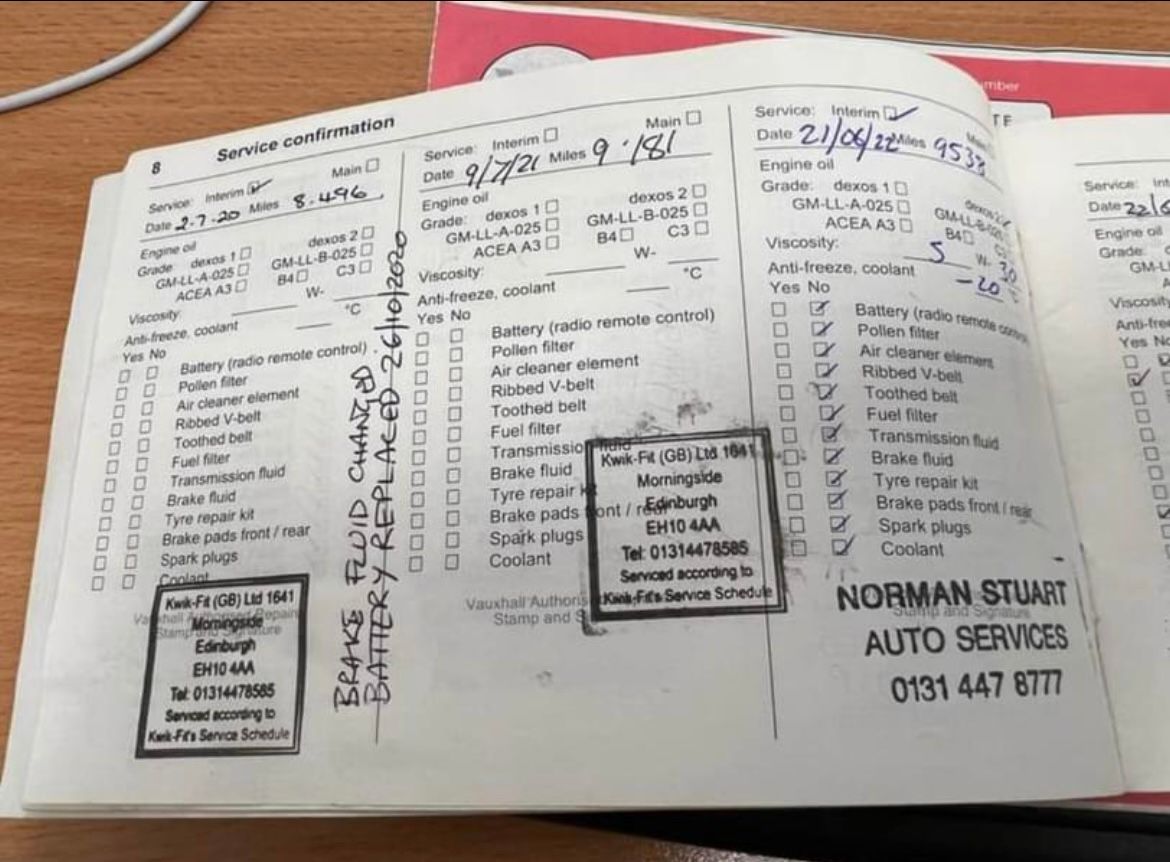 mber
TE
8 Service confirmation
Service: Interim Main
Date 2-7-20 Miles 8-496
Engine oil
Grade: dexos 1 dexos 2
GM-LL-A-025 GM-LL-B-025
ACEA A3 B4 C3
Viscosity: W-
Anti-freeze, coolant °C
Yes No
Battery (radio remote control)
Pollen filter
Air cleaner element
Ribbed V-belt
Toothed belt
Fuel filter
Transmission fluid
Brake fluid
Tyre repair kit
Brake pads front / rear
Spark plugs
Coolant
Vauxhall Authorised Repairer
Stamp and Signature
Kwik-Fit (GB) Ltd 1641
Morningside
Edinburgh
EH10 4AA
Tel: 01314478585
Serviced according to
Kwik-Fit's Service Schedule
BRAKE FLUID CHANGED
BATTERY REPLACED 26/10/2020
Service: Interim Main
Date 9/7/21 Miles 9·181
Engine oil
Grade: dexos 1 dexos 2
GM-LL-A-025 GM-LL-B-025
ACEA A3 B4 C3
Viscosity: W-
Anti-freeze, coolant °C
Yes No
Battery (radio remote control)
Pollen filter
Air cleaner element
Ribbed V-belt
Toothed belt
Fuel filter
Transmission fluid
Brake fluid
Tyre repair kit
Brake pads front / rear
Spark plugs
Coolant
Vauxhall Authoris
Stamp and S
Kwik-Fit (GB) Ltd 1641
Morningside
Edinburgh
EH10 4AA
Tel: 01314478585
Serviced according to
Kwik-Fit's Service Schedule
Service: Interim
Date 21/06/22 Miles 9538
Engine oil
Grade: dexos 1 dexos 2
GM-LL-A-025 GM-LL-B-025
ACEA A3 B4 C3
Viscosity: 5 W- 30
Anti-freeze, coolant -20 °C
Yes No
Battery (radio remote control)
Pollen filter
Air cleaner element
Ribbed V-belt
Toothed belt
Fuel filter
Transmission fluid
Brake fluid
Tyre repair kit
Brake pads front / rear
Spark plugs
Coolant
Stamp and Signature
NORMAN STUART
AUTO SERVICES
0131 447 8777
Service: Int
Date 22/
Engine oil
Grade:
GM-L
Viscosity
Anti-free
Yes No